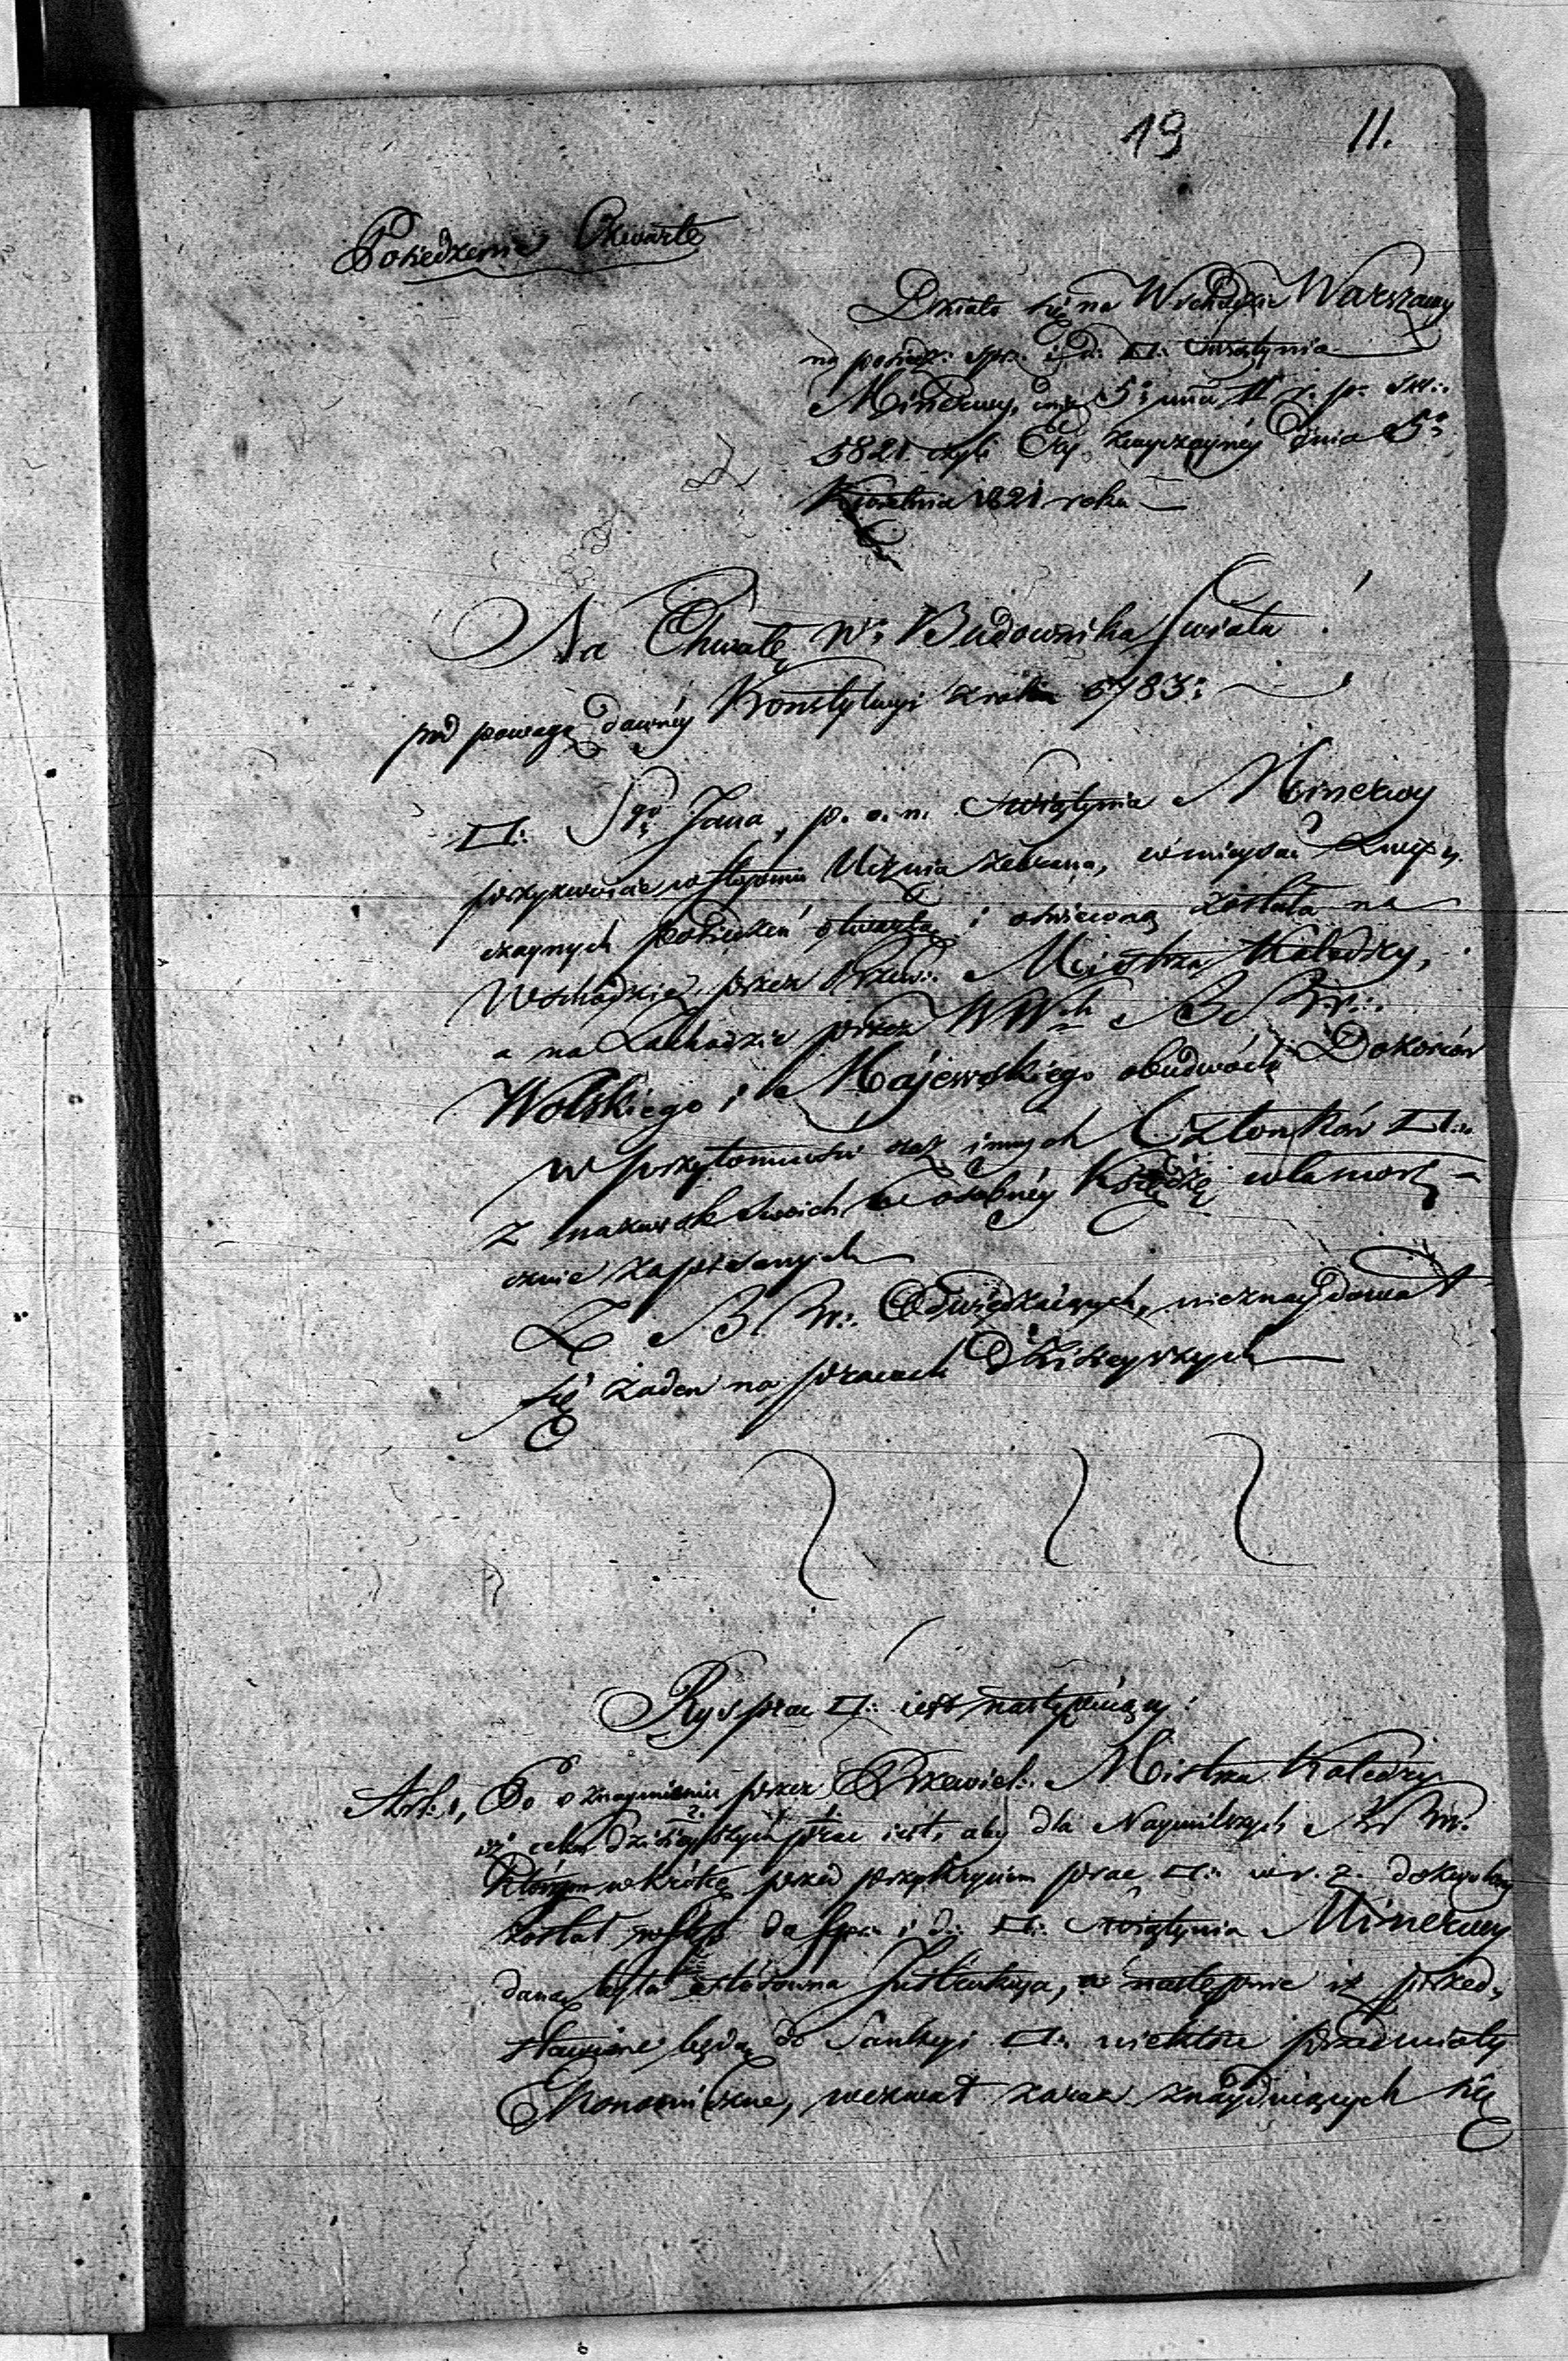 19 11.
Posiedzenie Czwarte
Działo się na Wschodzie Warszawy
na posiedz: spr: i d: □: Swiątynia
Minerwy, dnia 5º mca II r. p. św:.
5821. czyli Ery zwyczaynéy dnia 5º
Kwietnia 1821 roku
Na Chwałę W: Budownika Swiata!
pod powagą dawnéy Konstytucyi z roku 5783:
□: Sgo Jana, p. o. n. Swiątynia Minerwy
przyzwoicie w stopniu Ucznia zebrana, w mieyscu zwy
czaynych posiedzeń otwartą i oświeconą została na
Wschodzie przez Przew: Mistrza Katedry,
a na Zachodzie przez WWch BBr:.
Wolskiego i Majewskiego obudwóch Dozorców
w przytomności innych Członków □:.
z nazwisk swoich w osobnéy Księdze własnorę=
cznie zapisanych
Z BBr:. Odwiedzaiących, nieznaydował
się żaden na pracach dzisieyszych
Rys prac □: iest następuiący:
Art: 1, Po oznaymieniu przez Przewiel: Mistrza Katedry
iż celem dzisieyszych prac iest, aby dla Naymilszych BBr:.
którym wkrótce przed przykryciem prac □: w r. z. dozwolony
został wstęp do spr: i d: □: Swiątynia Minerwy
daną była stosowna Instrukcya, a następnie iż przed,
stawione będą do Sankcyi □: niektóre przedmioty
Ekonomiczne, wezwał zaraz znayduiących się